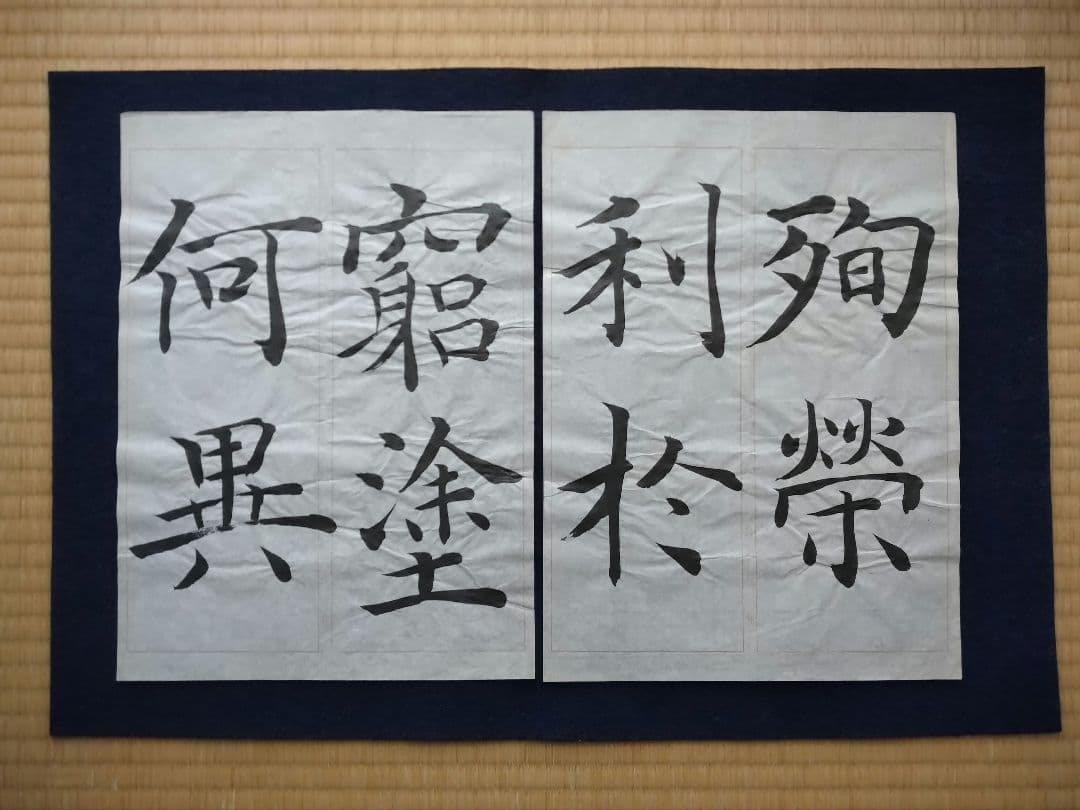 殉榮
利於
窮塗
何異